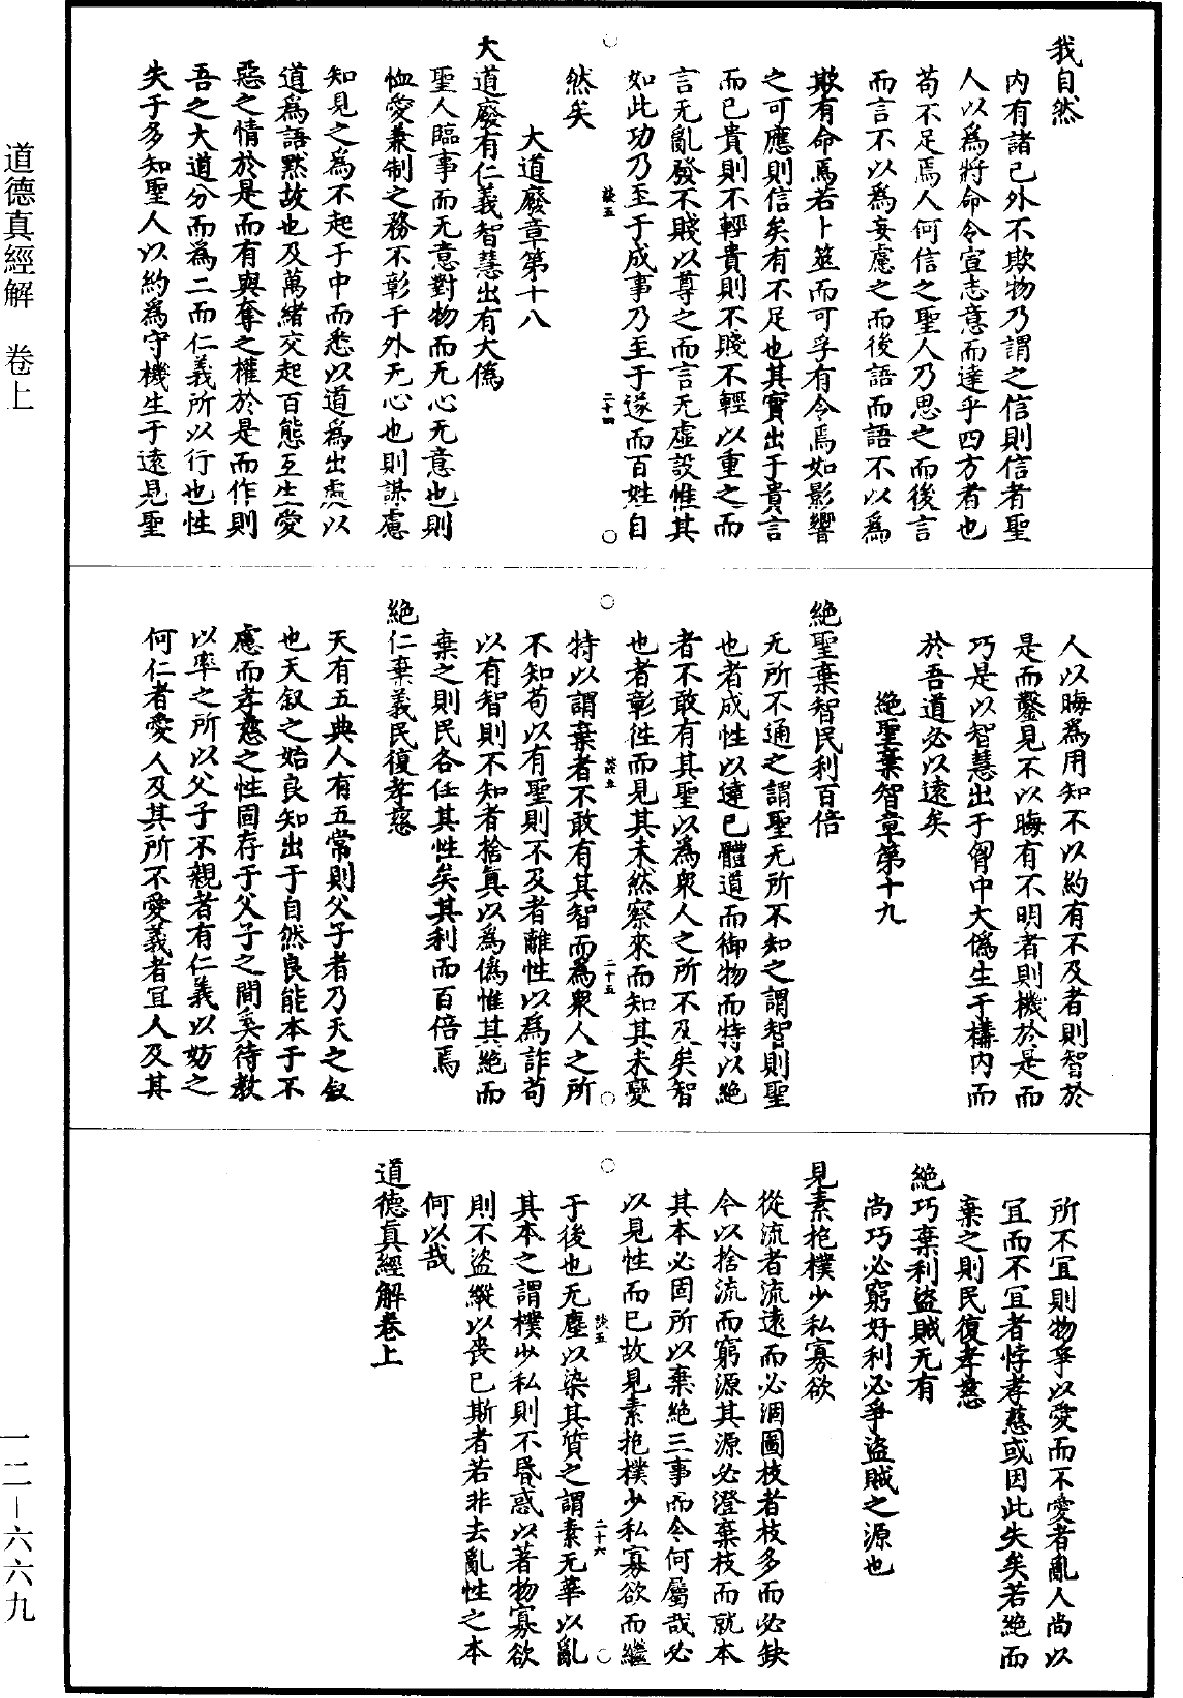 我自然
内有諸己外不欺物乃謂之信則信者聖
人以為將命令宣志意而達乎四方者也
苟不足焉人何信之聖人乃思之而後言
而言不以為妄慮之而後語而語不以為
欺有命焉若卜筮而可孚有令焉如影響
之可應則信矣有不足也其實出于貴言
而已貴則不輕貴則不賤不輕以重之而
言无亂發不賤以尊之而言无虛設惟其
如此功乃至于成事乃至于遂而百姓自
然矣
大道廢章第十八
大道廢有仁義智慧出有大偽
聖人臨事而无意對物而无心无意也則
恤愛兼制之務不彰于外无心也則謀慮
知見之為不起于中而悉以道為出處以
道為語默故也及萬緒交起百態互生愛
惡之情於是而有與奪之權於是而作則
吾之大道分而為二而仁義所以行也性
失于多知聖人以約為守機生于遠見聖
人以晦為用知不以約有不及者則智於
是而鑿見不以晦有不明者則機於是而
巧是以智慧出于胷中大偽生于構内而
於吾道必以遠矣
絕聖棄智章第十九
絕聖棄智民利百倍
无所不通之謂聖无所不知之謂智則聖
也者成性以達已體道而御物而特以絕
者不敢有其聖以為衆人之所不及矣智
也者彰徃而見其未然察來而知其未變
特以謂棄者不敢有其智而為衆人之所
不知苟以有聖則不及者離性以為詐苟
以有智則不知者捨真以為偽惟其絕而
棄之則民各任其性矣其利而百倍焉
絕仁棄義民復孝慈
天有五典人有五常則父子者乃天之叙
也天叙之始良知出于自然良能本于不
慮而孝慈之性固存于父子之間奚待教
以率之所以父子不親者有仁義以妨之
何仁者愛人及其所不愛義者宜人及其
所不宜則物爭以愛而不愛者亂人尚以
宜而不宜者悖孝慈或因此失矣若絕而
棄之則民復孝慈
絕巧棄利盜賊无有
尚巧必窮好利必爭盜賊之源也
見素抱樸少私寡欲
從流者流遠而必涸圖枝者枝多而必缺
今以捨流而窮源其源必澄棄枝而就本
其本必固所以棄絕三事而令何屬哉必
以見性而已故見素抱樸少私寡欲而繼
于後也无塵以染其質之謂素无華以亂
其本之謂樸少私則不昬惑以著物寡欲
則不盜縱以喪已斯者若非去亂性之本
何以哉
道德真經解卷上
談五
二十四
談五
二十五
談五
二十六
道德真經解　卷上
一二－六六九